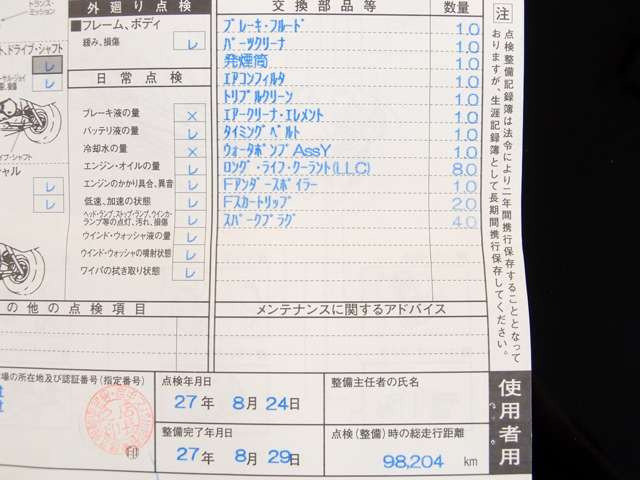 トランス・
ミッション
ト、ドライブ・シャフト
レ
レ
イブ・シャフト
シャル
レ
レ
外廻り点検
■フレーム、ボディ
緩み、損傷 レ
日常点検
ブレーキ液の量 ×
バッテリ液の量 レ
冷却水の量 ×
エンジン・オイルの量 レ
エンジンのかかり具合、異音 レ
低速、加速の状態 レ
ヘッド・ランプ、ストップ・ランプ、ウインカ・
ランプ等の点灯、汚れ、損傷 レ
ウインド・ウォッシャ液の量 レ
ウインド・ウォッシャの噴射状態 レ
ワイパの拭き取り状態 レ
の他の点検項目
交換部品等 数量
ブレーキ・フルード 1.0
パーツクリーナ 1.0
発煙筒 1.0
エアコンフィルタ 1.0
トリプルクリーン 1.0
エアークリーナ・エレメント 1.0
タイミングベルト 1.0
ウォータポンプAssY 1.0
ロング・ライフ・クーラント(LLC) 8.0
Fアンダースポイラー 1.0
Fスカートリップ 2.0
スパークプラグ 4.0
メンテナンスに関するアドバイス
注
点検整備記録簿は法令により二年間携行保存することとなって
おりますが、生涯記録簿として長期間携行保存してください。
場の所在地及び認証番号(指定番号)
印
点検年月日
27年 8月24日
整備主任者の氏名
整備完了年月日
27年 8月29日
点検(整備)時の総走行距離
98,204 km
使用者用